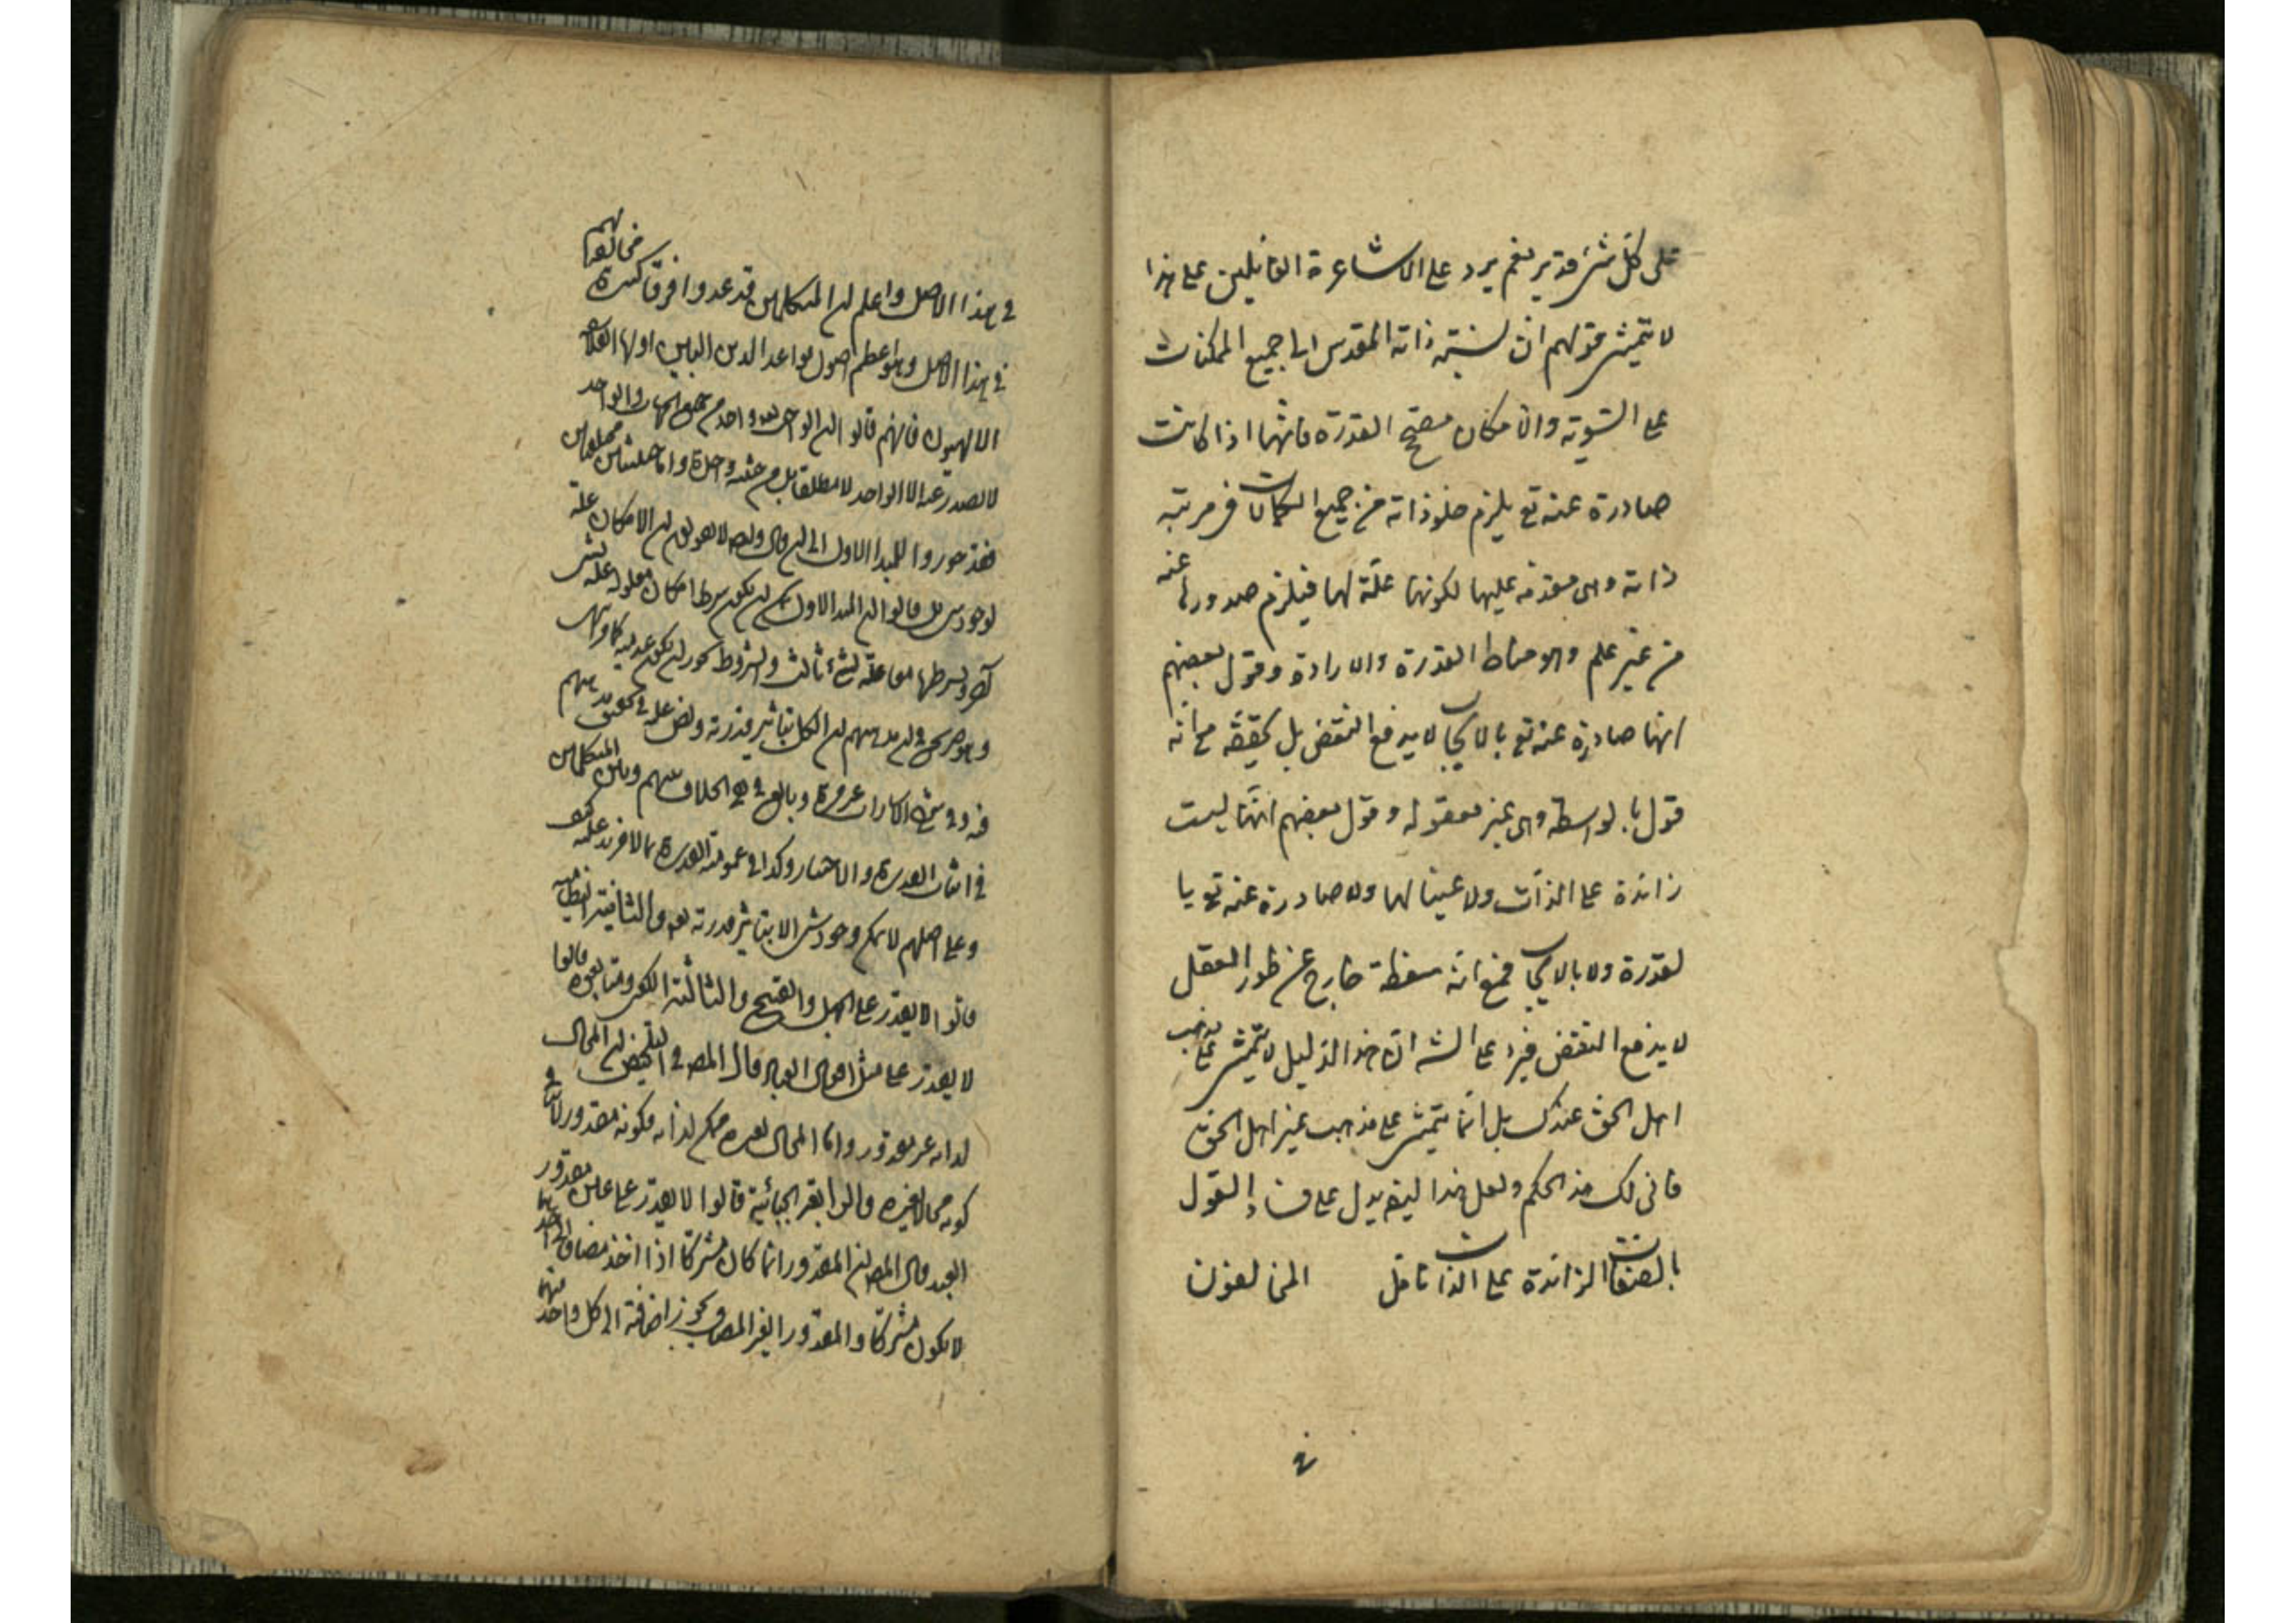 على كل شئ قدير نعم يرد على الاشاعرة القائلين على هذا
لا يتمشى قولهم ان نسبة ذاته المقدس الى جميع الممكنات
على السوية والامكان مصحح القدرة فانها اذا كانت
صادرة عنه تع يلزم خلو ذاته من جميع الكمالات فى مرتبة
ذاته وهى متقدمة عليها لكونها علة لها فيلزم صدورها عنه
من غير علم وهو مناط القدرة والارادة وقول بعضهم
انها صادرة عنه تع بالايجاب لا يدفع النقض بل يحققه مع انه
قول بالواسطة وهى غير معقولة وقول بعضهم انها ليست
زائدة على الذات ولا عينا لها ولا صادرة عنه تع با
لقدرة ولا بالايجاب فمع انه سفطة خارج عن طور العقل
لا يدفع النقض فيرد على الش ان هذا الدليل لا يتمشى على مذهب
اهل الحق عندك بل انما يتمشى على مذهب غير اهل الحق
فانى لك هذا الحكم ولعل هذا ايضا يدل على فساد القول
بالصفات الزائدة على الذات تامل المخالفون
فى هذا الاصل واعلم ان المتكلمين قد عدوا فرقا كثيرة مخالفوا
فى هذا الاصل وهو اعظم اصول قواعد الدين اولها الفلاسفة
الالهيون فانهم قالوا ان الواجب تعالى واحد من جميع الجهات والواحد
لا يصدر عنه الا الواحد لا مطلقا بل من حيثية واحدة واما حيثيتين مختلفتين
فقد جوزوا للمبدا الاول ان الامكان علة
لوجود شئ بل قالوا ان المبدا الاول يمكن ان يكون بشرط امكان معلوله علة لشئ
آخر وبشرطهما معا علة لشئ ثالث والشروط يجوز ان يكون عدمية
وهو صريح فى ان مذهبهم ان الكل بتاثير قدرته
فى شرح الاشارات غير مرة وبالغ فى رفع الخلاف بينهم وبين المتكلمين
فى اثبات القدرة والاختيار وكذا فى عمومية القدرة بما لا مزيد عليه
وعلى اصلهم لا يمكن وجود شئ الا بتاثير قدرته تعالى والثانية النظامية
قالوا لا يقدر على الجهل والقبح والثالثة الكعبى ومتابعوه قالوا
لا يقدر على مثل افعال العباد قال المص فى التلخيص ان المحال
لذاته غير مقدور واما المحال لغيره ممكن لذاته فكونه مقدورا
كونه محالا لغيره والرابعة الجبائية قالوا لا يقدر على عين مقدور
العبد قال المص ان المقدور انما كان مشتركا اذا اخذ مضافا الى احدهما
لا يكون مشتركا والمقدور الغير المضاف يجوز اضافته الى كل واحد منهما